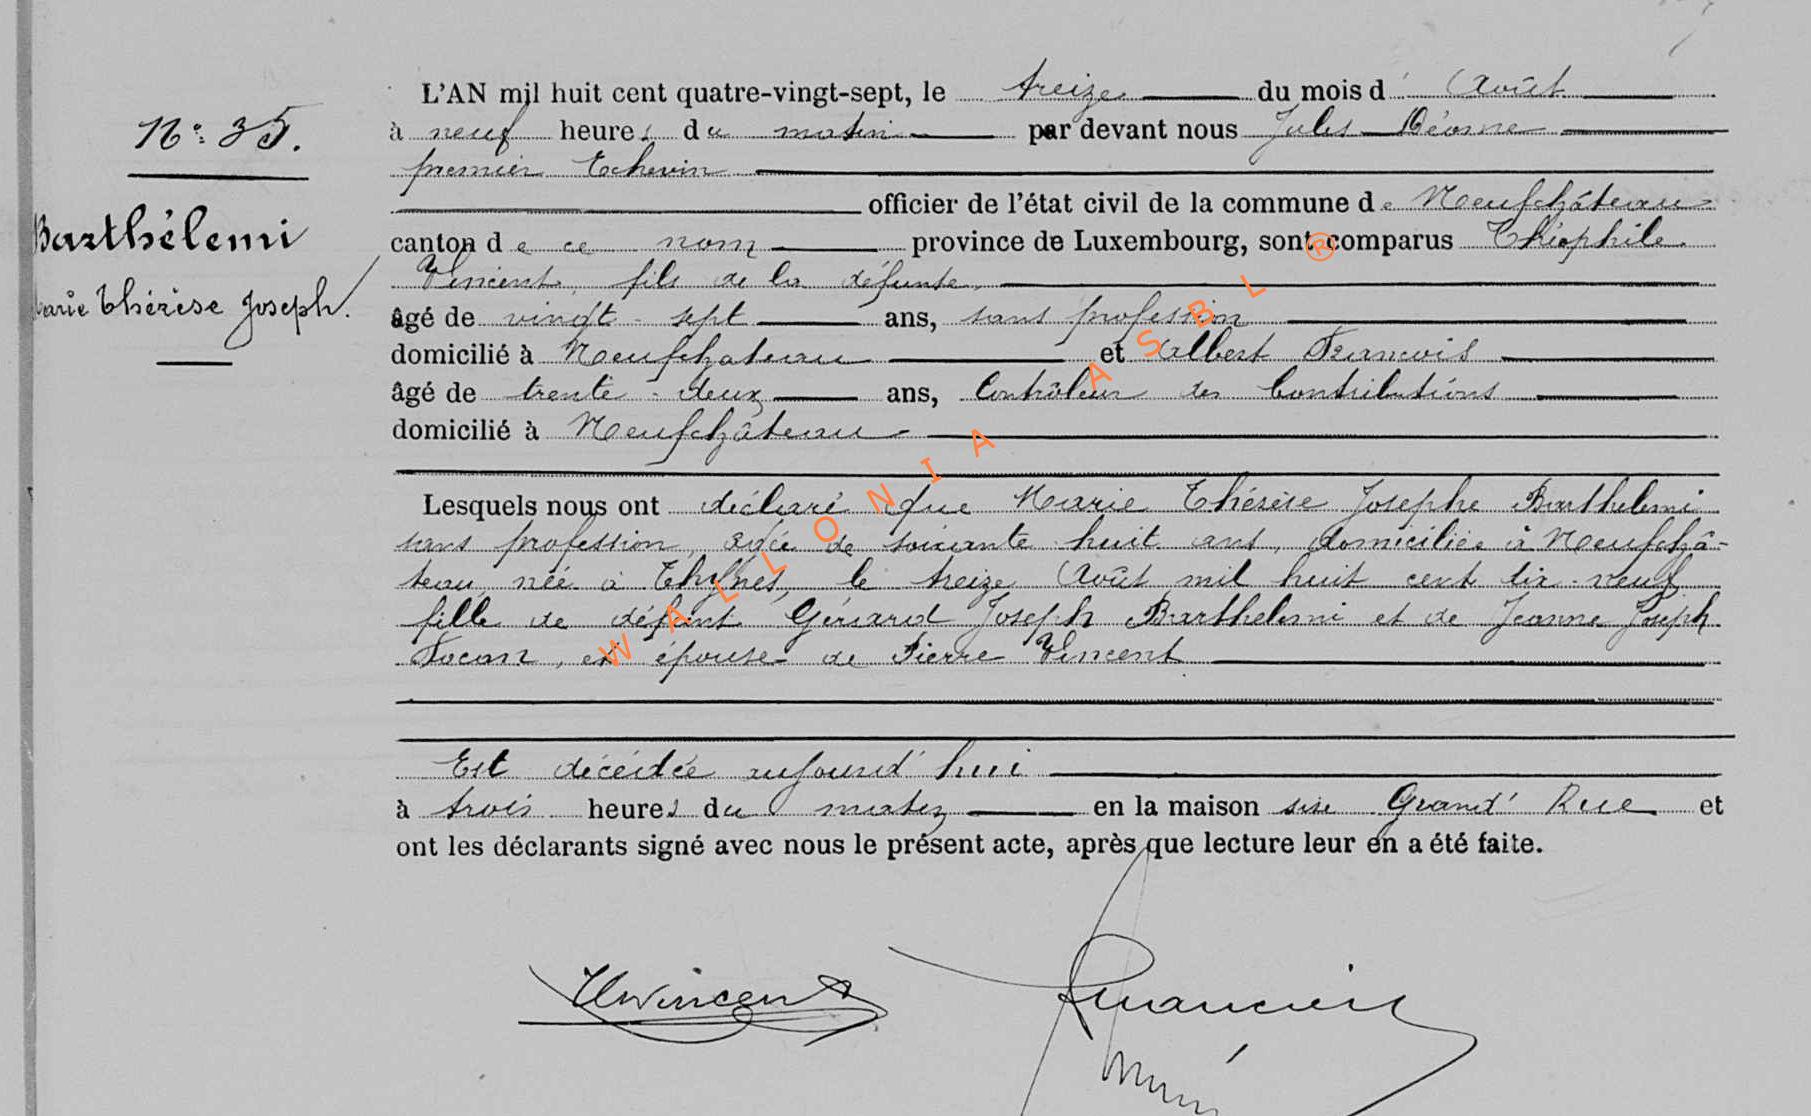 L'AN mil huit cent quatre-vingt-sept, le treize du mois d' Août
N° 35.
à neuf heures du matin par devant nous Jules
premier Echevin
officier de l'état civil de la commune de Neufchâteau
Barthélemi
canton de ce nom province de Luxembourg, sont comparus Théophile
Vincent, fils de la défunte,
Marie Thérèse Joseph.
âgé de vingt-sept ans, sans profession
domicilié à Neufchateau et Albert Francois
âgé de trente-deux ans, Contrôleur des Contributions
domicilié à Neufchâteau
Lesquels nous ont déclaré que Marie Thérèse Josephe Barthelemi
sans profession, agée de soixante huit ans, domiciliée à Neufchâ-
teau, née à le treize Août mil huit cent dix-neuf
fille de défunt Gérard Joseph Barthelemi et de Jeanne Joseph
et épouse de Pierre Vincent
Est décédée aujourd'hui
à trois heures du matin en la maison sise Grand' Rue et
ont les déclarants signé avec nous le présent acte, après que lecture leur en a été faite.
WALLONIA ASBL ®
ThVincent